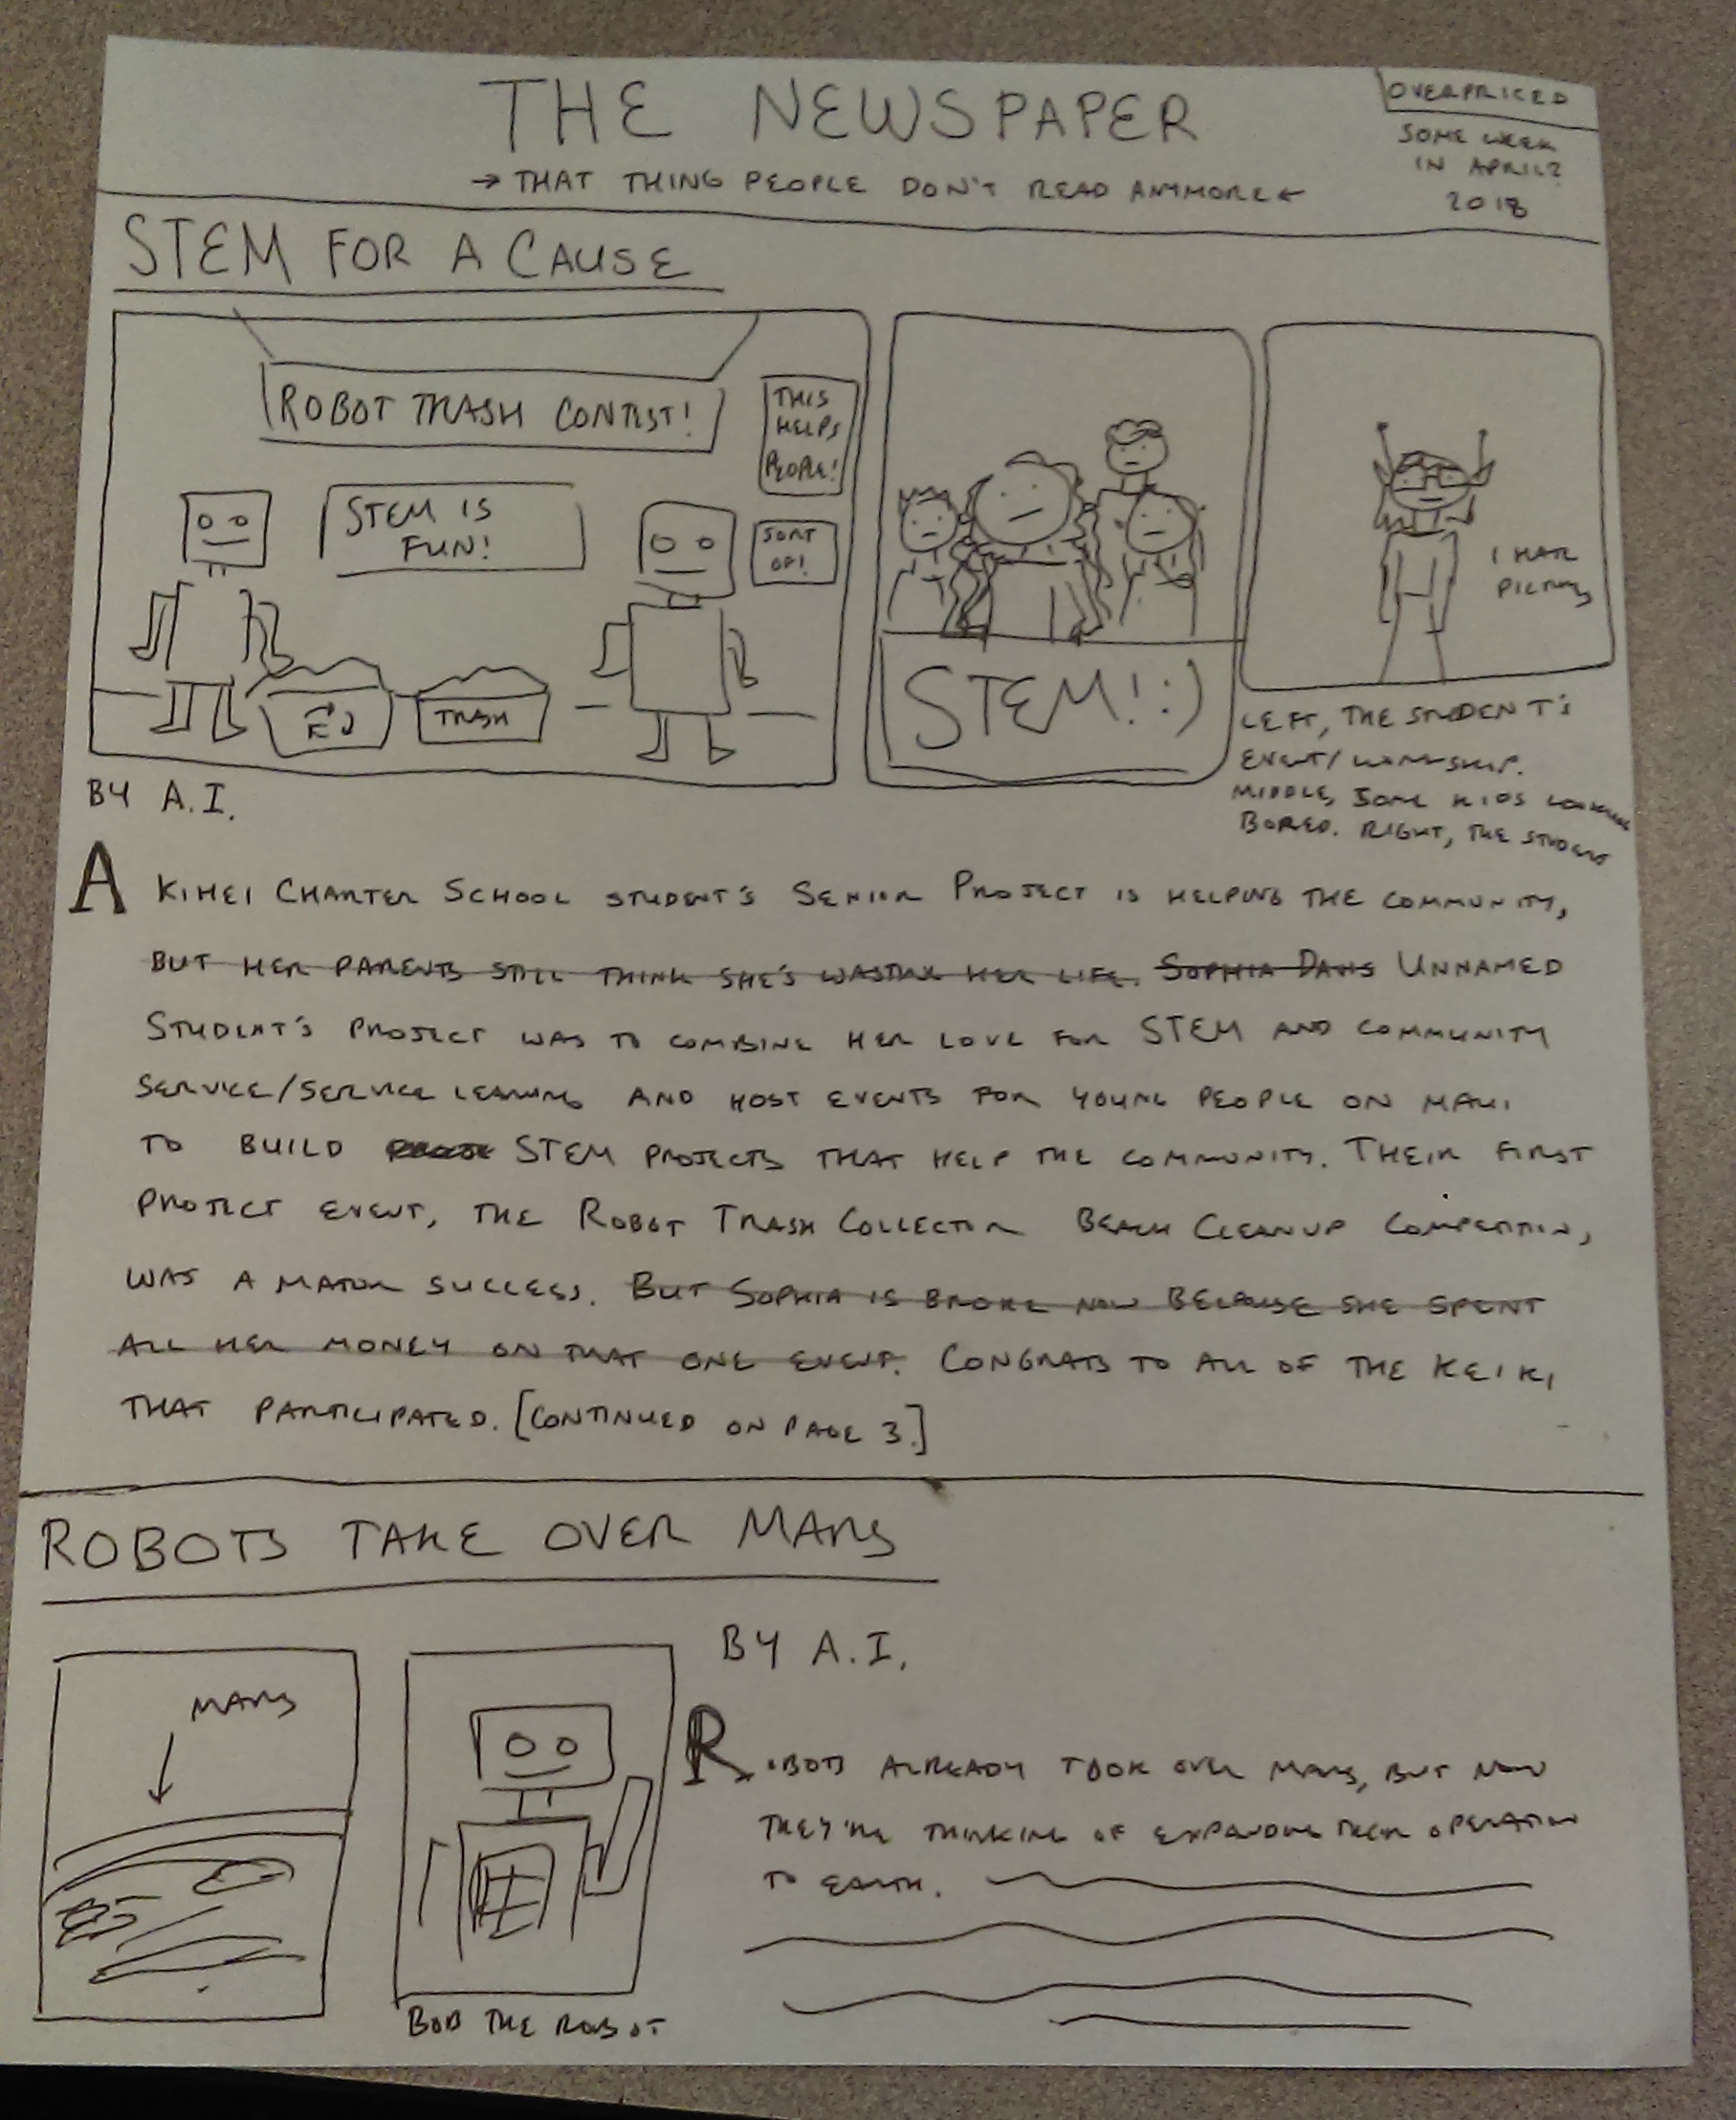 THE NEWSPAPER
→ THAT THING PEOPLE DON'T READ ANYMORE ←
OVERPRICED
SOME WEEK
IN APRIL?
2018
STEM FOR A CAUSE
ROBOT TRASH CONTEST!
THIS
HELPS
PEOPLE!
STEM IS
FUN!
SORT
OF!
TRASH
STEM! :)
I HATE
PICTURES
LEFT, THE STUDENT'S
EVENT/WORKSHIP.
MIDDLE, SOME KIDS LOOKING
BORED. RIGHT, THE STUDENT
BY A.I.
A KIHEI CHARTER SCHOOL STUDENT'S SENIOR PROJECT IS HELPING THE COMMUNITY,
BUT HER PARENTS STILL THINK SHE'S WASTING HER LIFE. SOPHIA DAVIS UNNAMED
STUDENT'S PROJECT WAS TO COMBINE HER LOVE FOR STEM AND COMMUNITY
SERVICE/SERVICE LEARNING AND HOST EVENTS FOR YOUNG PEOPLE ON MAUI
TO BUILD STEM PROJECTS THAT HELP THE COMMUNITY. THEIR FIRST
PROJECT EVENT, THE ROBOT TRASH COLLECTOR BEACH CLEANUP COMPETITION,
WAS A MAJOR SUCCESS. BUT SOPHIA IS BROKE NOW BECAUSE SHE SPENT
ALL HER MONEY ON THAT ONE EVENT. CONGRATS TO ALL OF THE KEIKI
THAT PARTICIPATED. [CONTINUED ON PAGE 3.]
ROBOTS TAKE OVER MARS
MARS
BOB THE ROBOT
BY A.I.
ROBOTS ALREADY TOOK OVER MARS, BUT NOW
THEY'RE THINKING OF EXPANDING THEIR OPERATION
TO EARTH.